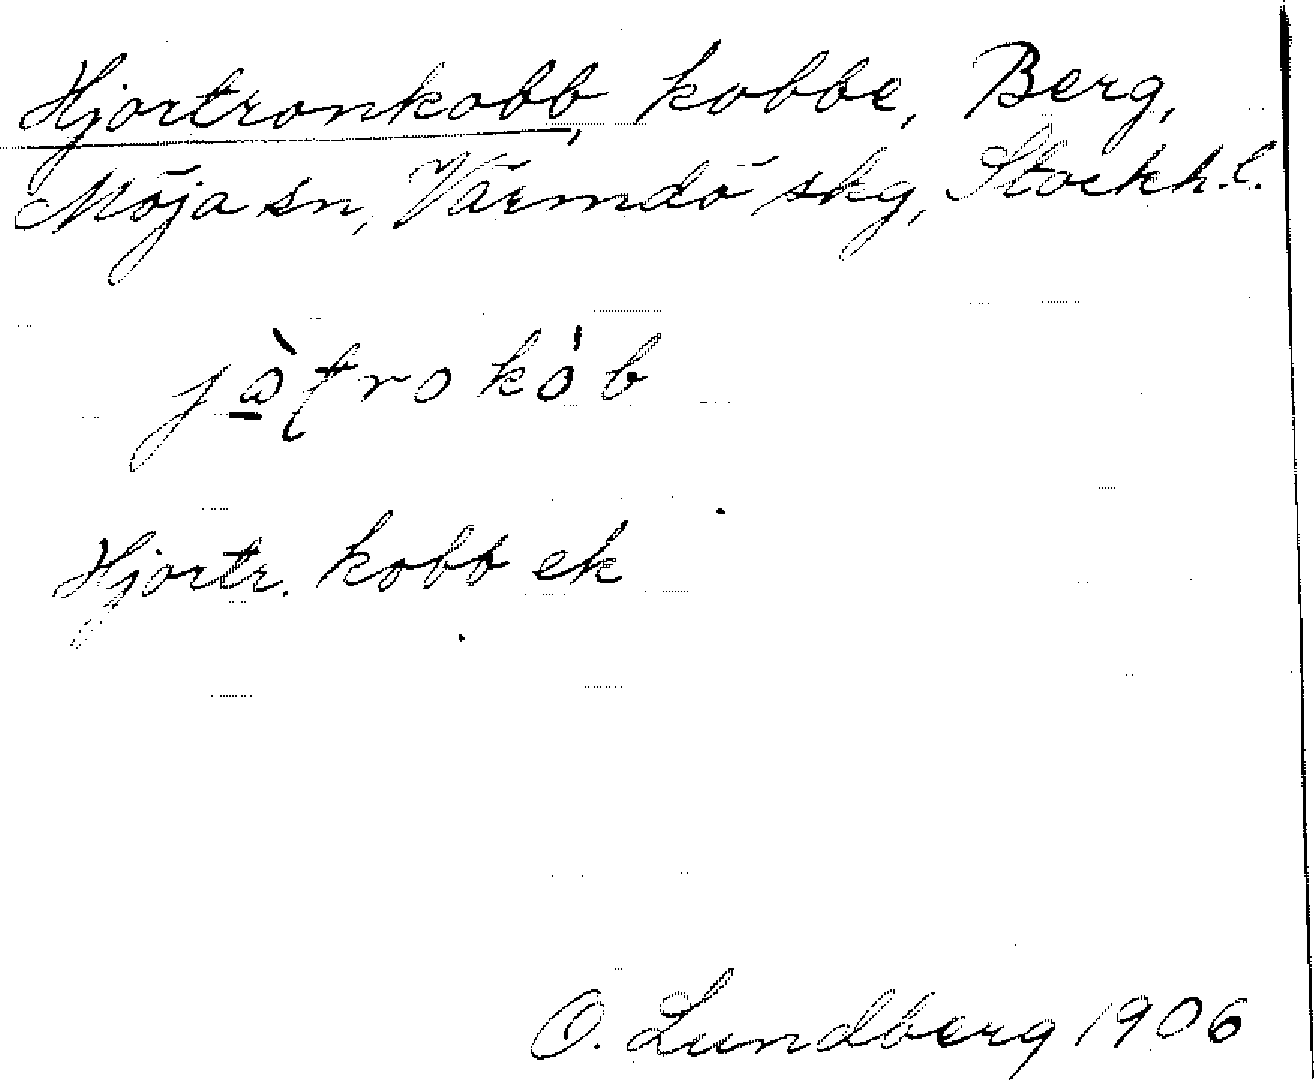 Hjortronkobb, kobbe, Berg,
Möja sn, Värmdö skg, Stockh.l.
jὼtrokób
Hjortr. kobb ek
O. Lundberg 1906